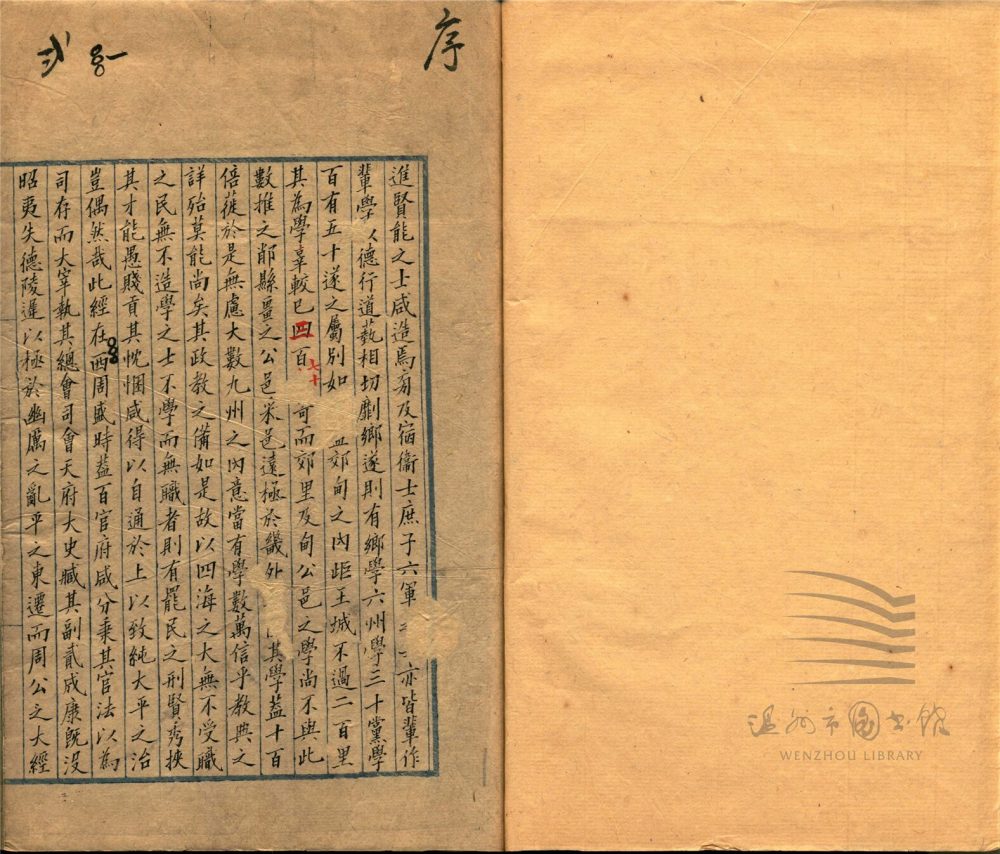 序
進賢能之士咸造焉旁及宿衞士庶子六軍亦皆輩作
輩學以德行道藝相切劘鄉遂則有鄉學六州學三十黨學
百有五十遂之屬別如郊甸之內距王城不過二百里
其為學辜較已四百七十可而郊里及甸公邑之學尚不與此
數推之郙縣畺之公邑采邑遠極於畿外其學葢十百
倍蓰於是無慮大數九州之內意當有學數萬信乎教典之
詳殆莫能尚矣其政教之備如是故以四海之大無不受職
之民無不造學之士不學而無職者則有罷民之刑賢秀挾
其才能愚賤貢其忱悃咸得以自通於上以致純大平之治
豈偶然哉此經在西周盛時葢百官府咸分秉其官法以為
司存而大宰執其總會司會天府大史臧其副貳成康旣沒
昭夷失德陵遲以極於幽厲之亂平之東遷而周公之大經
温州市图书馆
WENZHOU LIBRARY